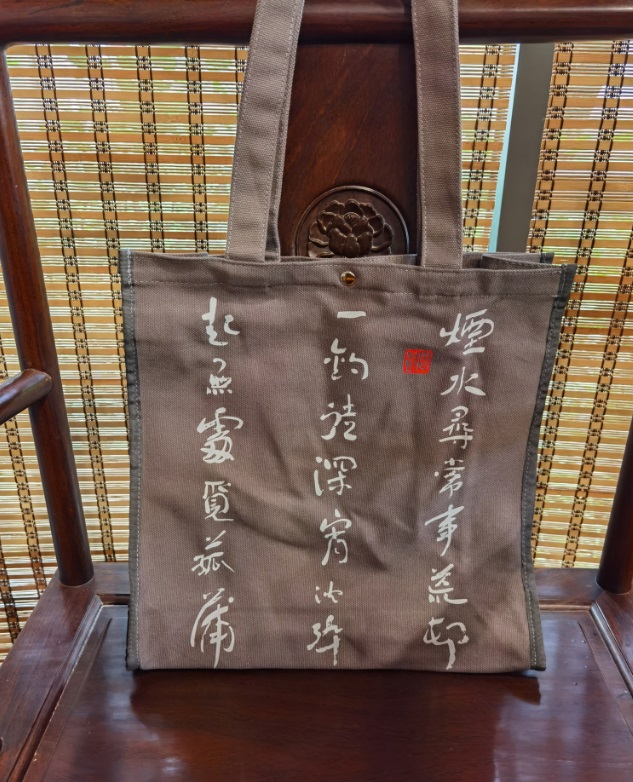 煙水尋常事荒邨
一釣徒深宵沈醉
起無處覓菰蒲